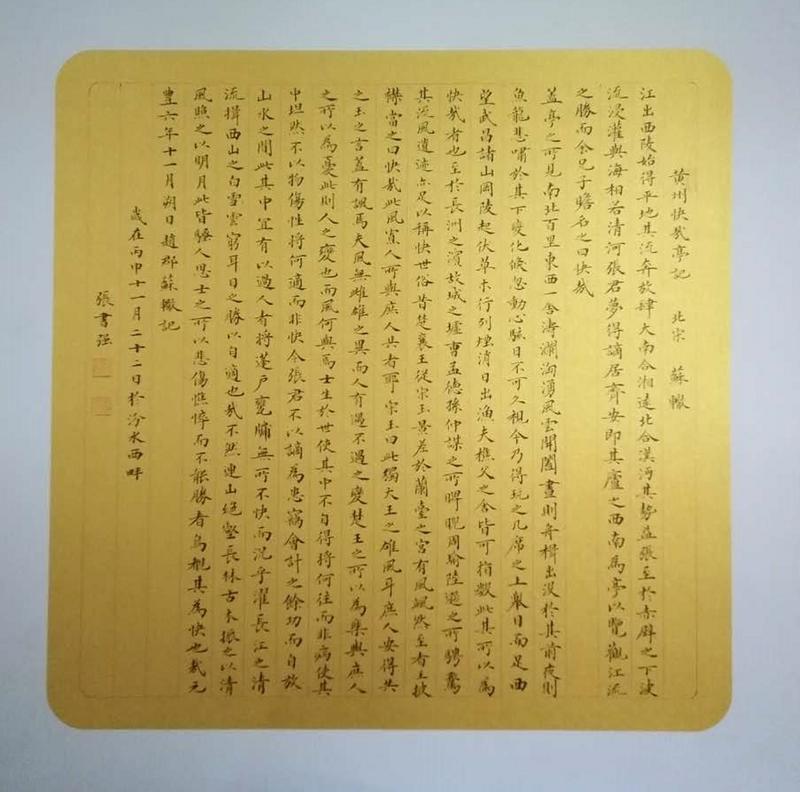 黄州快哉亭記 北宋 蘇轍
江出西陵始得平地其流奔放肆大南合湘沅北合漢沔其勢益張至於赤壁之下波
流浸灌與海相若清河張君夢得謫居齊安即其廬之西南為亭以覽觀江流
之勝而余兄子瞻名之曰快哉
蓋亭之所見南北百里東西一舍濤瀾洶湧風雲開闔晝則舟楫出沒於其前夜則
魚龍悲嘯於其下變化倏忽動心駭目不可久視今乃得玩之几席之上舉目而足西
望武昌諸山岡陵起伏草木行列煙消日出漁夫樵父之舍皆可指數此其所以為
快哉者也至於長洲之濱故城之墟曹孟德孫仲謀之所睥睨周瑜陸遜之所騁騖
其流風遺迹亦足以稱快世俗昔楚襄王從宋玉景差於蘭臺之宮有風颯然至者王披
襟當之曰快哉此風寡人所與庶人共者耶宋玉曰此獨大王之雄風耳庶人安得共
之王之言蓋有諷焉夫風無雌雄之異而人有遇不遇之變楚王之所以為樂與庶人
之所以為憂此則人之變也而風何與焉士生於世使其中不自得將何往而非病使其
中坦然不以物傷性將何適而非快今張君不以謫為患竊會計之餘功而自放
山水之間此其中宜有以過人者將蓬戶甕牖無所不快而況乎濯長江之清
流揖西山之白雲窮耳目之勝以自適也哉不然連山絕壑長林古木振之以清
風照之以明月此皆騷人思士之所以悲傷憔悴而不能勝者烏覩其為快也哉元
豐六年十一月朔日趙郡蘇轍記
歲在丙申十一月二十二日於汾水西畔
張書強